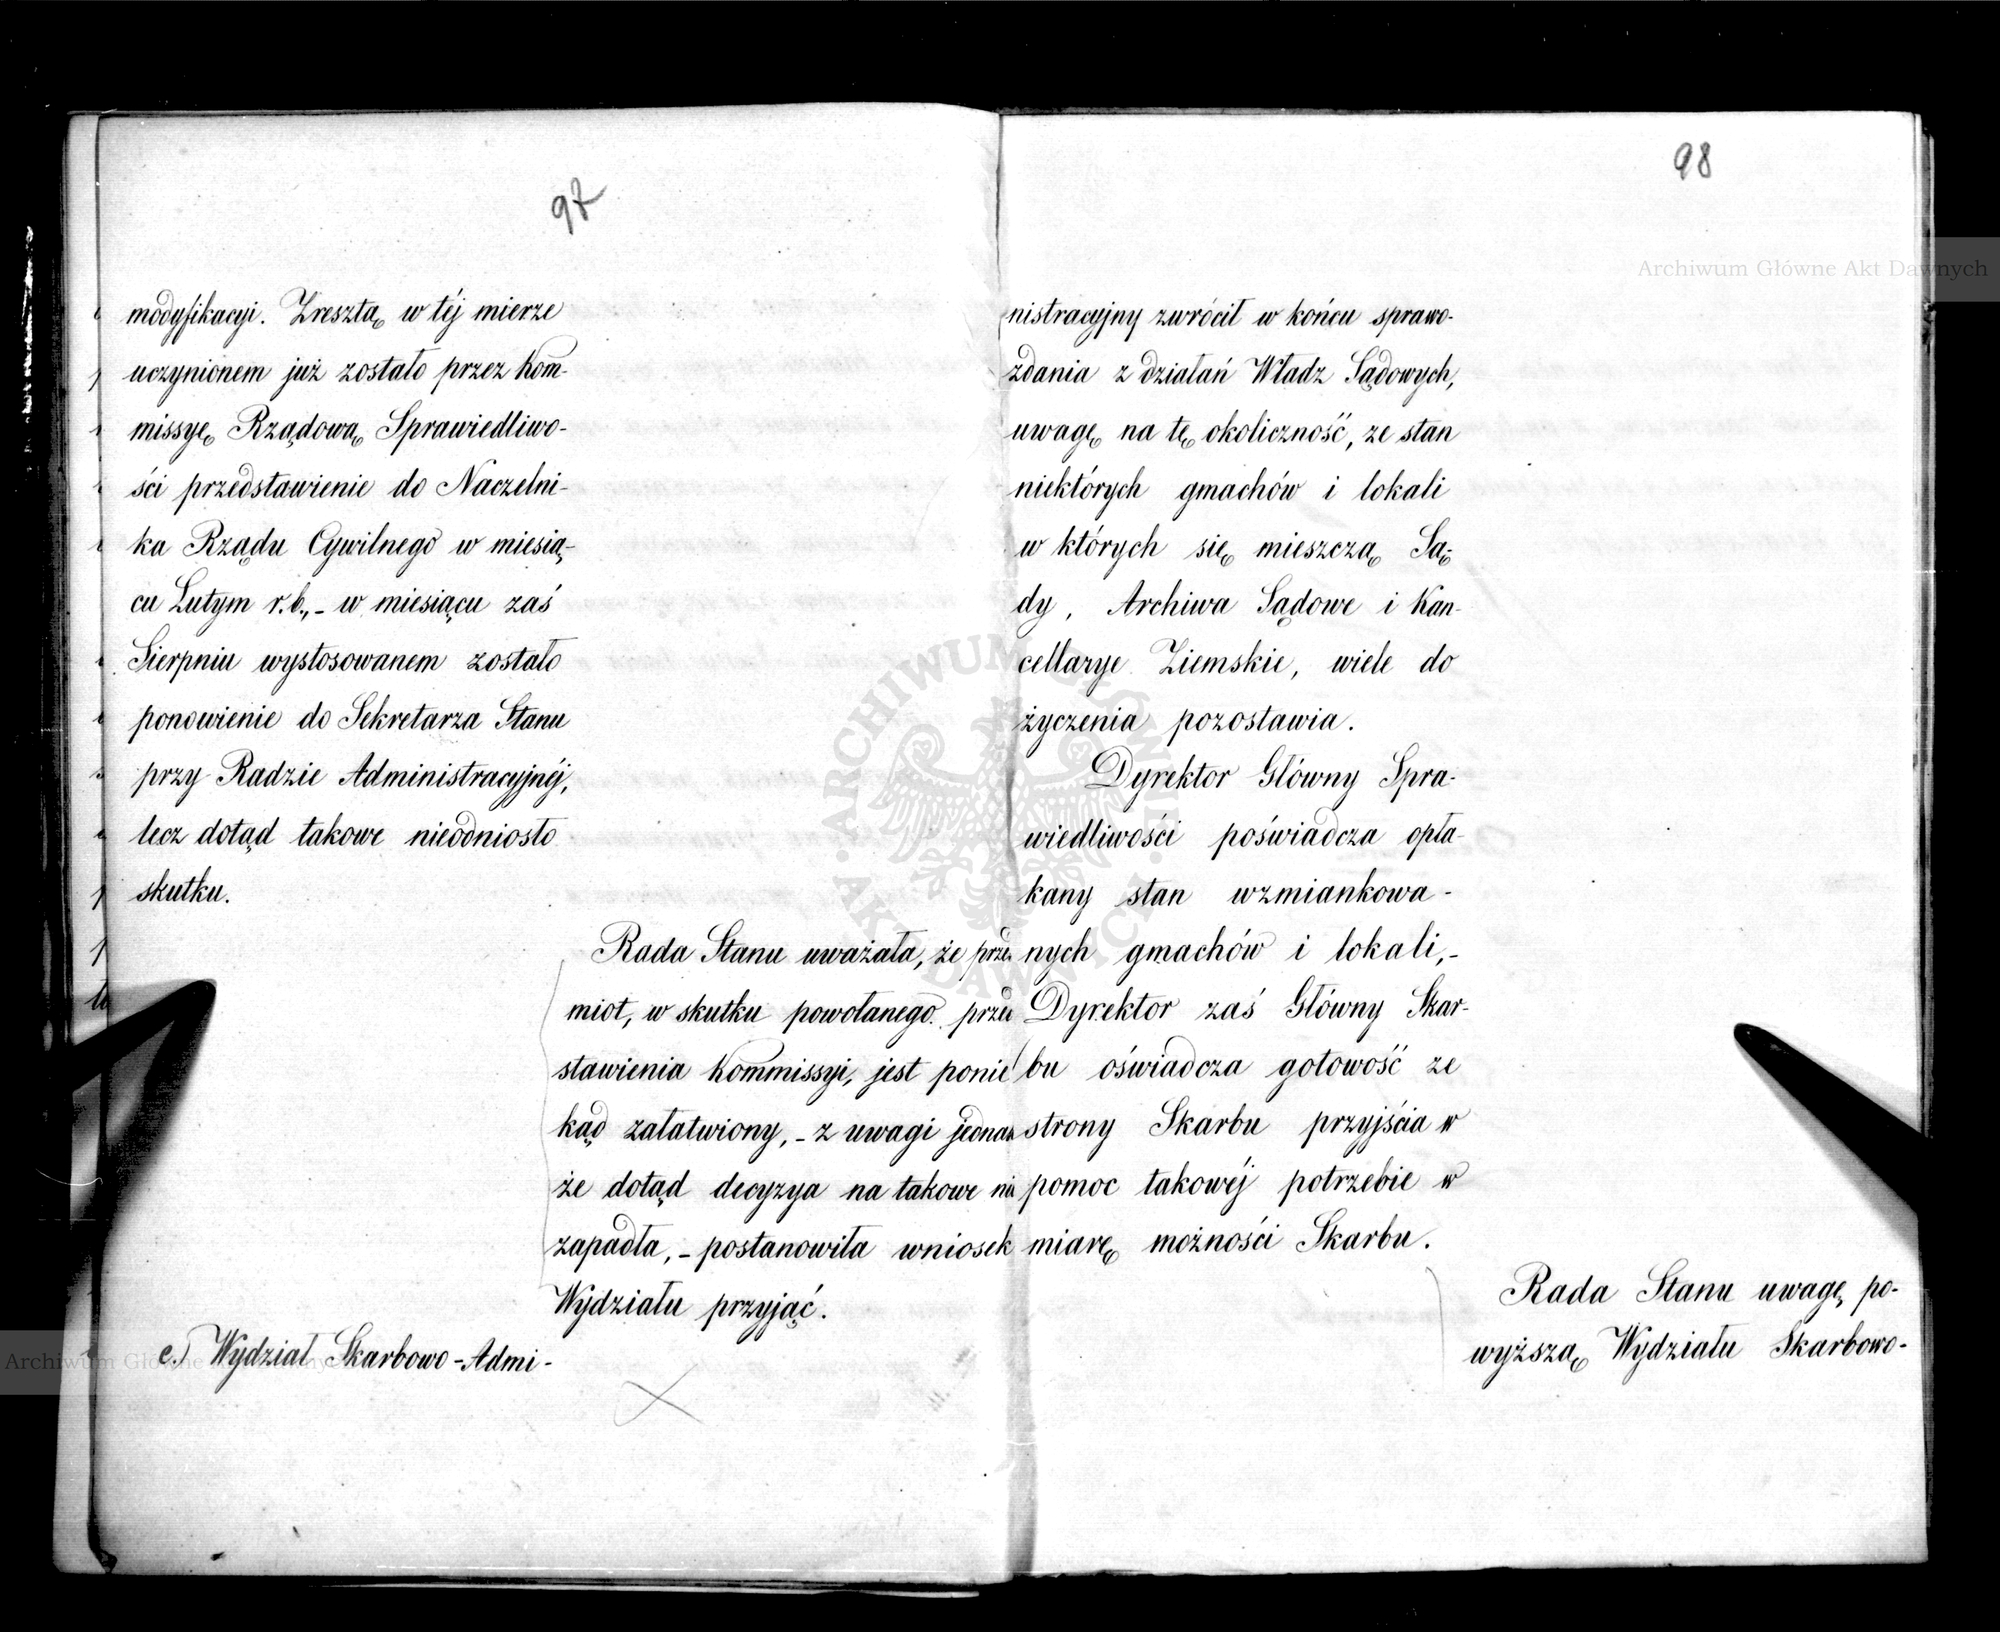 97
modyfikacyi. Zresztą w téj mierze
uczynionem już zostało przez Kom-
missyę Rządową Sprawiedliwo-
ści przedstawienie do Naczelni-
ka Rządu Cywilnego w miesią-
cu Lutym r.b., - w miesiącu zaś
Sierpniu wystosowanem zostało
ponowienie do Sekretarza Stanu
przy Radzie Administracyjnéj,
lecz dotąd takowe nieodniosło
skutku.
Rada Stanu uważała, że prze
miot, w skutku powołanego przed
stawienia Kommissyi, jest ponie
kąd załatwiony, - z uwagi jednak
że dotąd decyzya na takowe nie
zapadła, - postanowiła wniosek
Wydziału przyjąć.
c.) Wydział Skarbowo - Admi -
98
nistracyjny zwrócił w końcu sprawo-
zdania z działań Władz Sądowych,
uwagę na tę okoliczność, ze stan
niektórych gmachów i lokali
w których się mieszczą Są-
dy, Archiwa Sądowe i Kan-
cellarye Ziemskie, wiele do
życzenia pozostawia.
Dyrektor Główny Spra-
wiedliwości poświadcza opła-
kany stan wzmiankowa -
nych gmachów i lokali, -
Dyrektor zaś Główny Skar-
bu oświadcza gotowość ze
strony Skarbu przyjścia w
pomoc takowéj potrzebie w
miarę możności Skarbu.
Rada Stanu uwagę po-
wyższą Wydziału Skarbowo-
Archiwum Główne Akt Dawnych
Archiwum Główne Akt Dawnych
ARCHIWUM GŁÓWNE AKT DAWNYCH